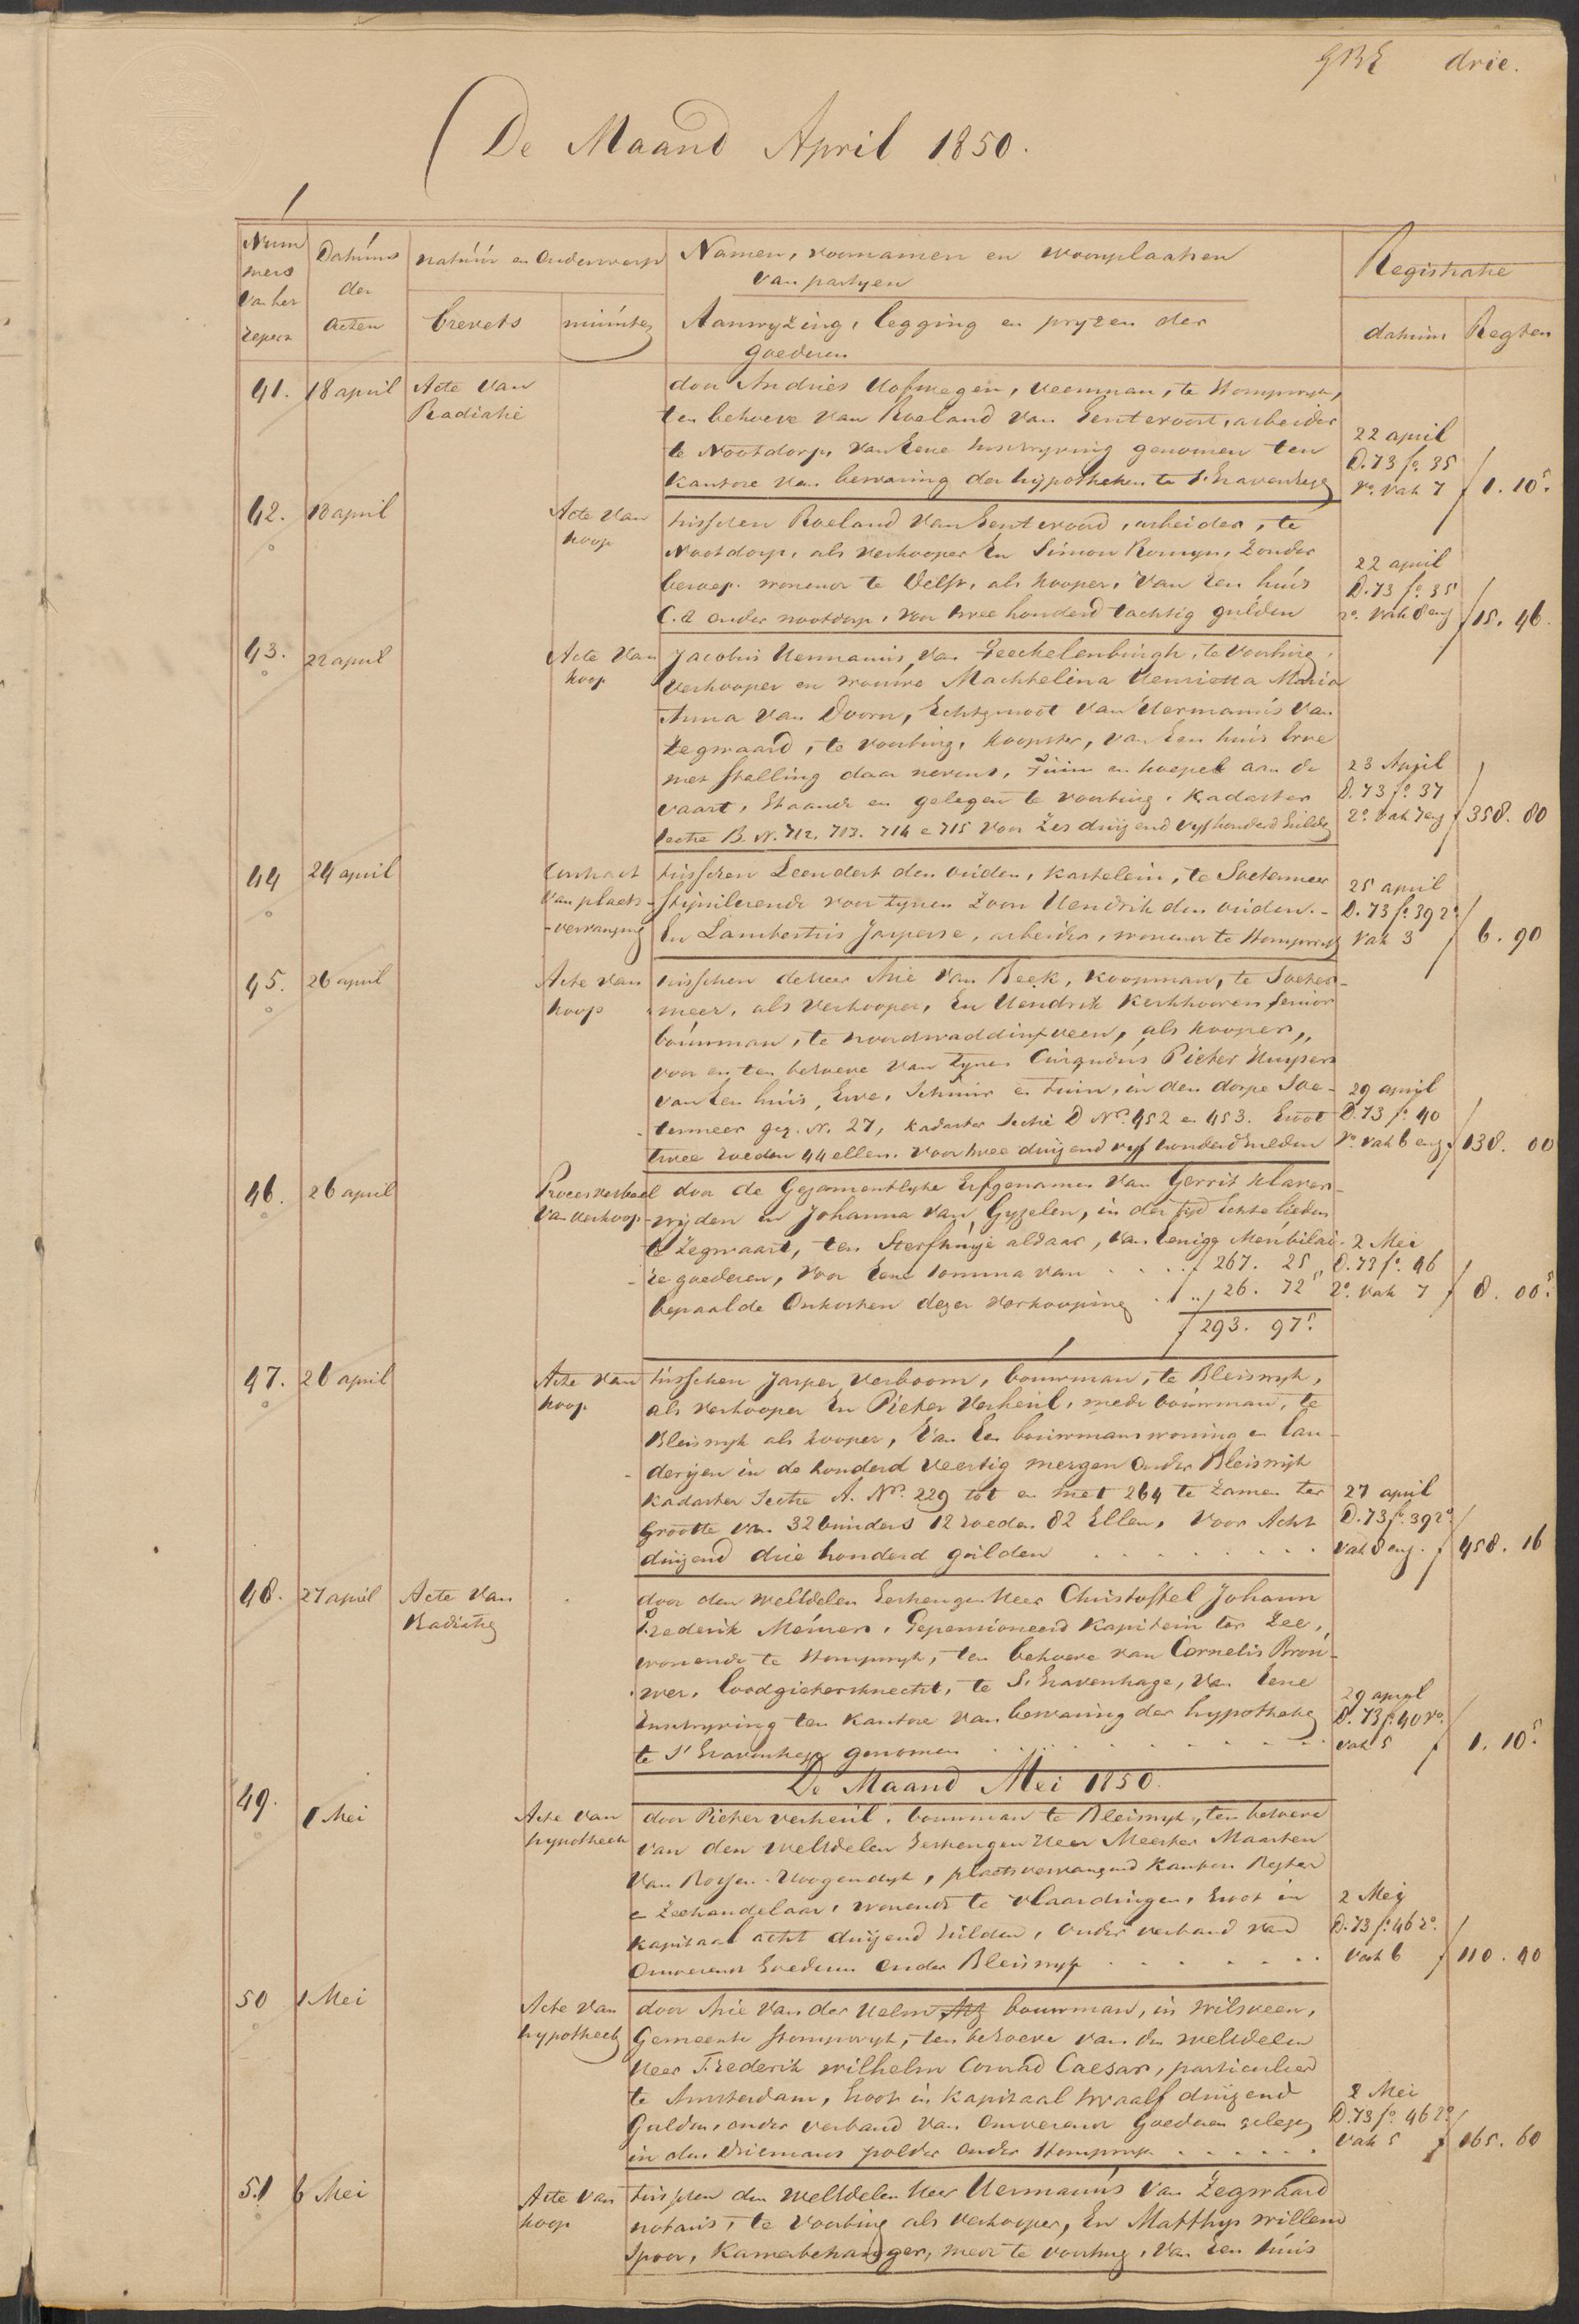 GBE drie.
De Maand April 1850.
Num
mers
van het
Repert
Datums
der
Acten
natuur en Onderwerp
brevets
minuten
Namen, voornamen en woonplaatsen
van partyen
Aanwyzing, legging en pryzen der
goederen
Registratie
datum Regten
41. 18 april Acte van
Radiatie
door Andries Hofwegen, veenman, te Stompwyk,
ten behoeve van Roeland van Sentervort, arbeider
te Nootdorp, van Eene Inschryving genomen ten
kantore van bewaring der hypotheken te s'Gravenhage
22 april
D. 73 fo. 35
Vo. Vak 7 f 1. 10 5.
42. 18 april Acte van
koop
tusschen Roeland van Sentervoord, arbeider, te
Nootdorp, als verkooper En Simon Romyn, zonder
beroep. wonende te Delft, als kooper, van Een huis
C.A onder nootdorp, voor twee honderd tachtig gulden
22 april
D. 73 fo. 35
Vo. Vak 8 enz f 15. 46.
43. 22 april Acte van
koop
Jacobus Hermanus van Teeckelenburgh, te Voorburg,
Verkooper en vrouwe Machtelina Henrietta Maria
Anna van Doorn, Echtgenoot van Hermanus van
Zegwaard, te voorburg, koopster, van Een huis Erve
met Stalling daar nevens, Tuin en koepel aan de
vaart, Staande en gelegen te voorburg, kadaster
Sectie B. N. 712. 713. 714 e 715 voor Zes duizend vyfhonderd Gulden
23 April
D. 73 fo. 37
Vo. Vak 7 enz f 358. 80
44 24 april Contract
van plaats-
-vervanging
tusschen Leendert den ouden, kastelein, te Soetermeer
Stipulerende voor zynen Zoon Hendrik den ouden. -
En Lambertus Jasperse, arbeider, wonende te Stompwyk
25 april
D. 73 fo. 39 Vo
Vak 3 f 6. 90
45. 26 april Acte van
koop
tusschen de Heer Arie van Beek, koopman, te Soeter-
meer, als Verkooper, En Hendrik Kerkhooven senior
bouwman, te noordwaddinxveen, als kooper,
voor en ten behoeve van zynen Pieter Kuypers
van Een huis, Erve, Schuur en tuin, in den dorpe Soe-
termeer geq. N. 27, kadaster Sectie D No. 452 en 453. Groot
twee roeden 44 ellen. voor twee duizend vyf honderd Gulden
29 april
D. 73 fo. 40
Vo. Vak 6 enz f 138. 00
46. 26 april Procesverbaal
van verkoop
door de Gezamentlyke Erfgenamen van Gerrit Klaver-
wyden en Johanna van Gyzelen, in der tyd Echte lieden
te Zegwaart, ten Sterfhuize aldaar, van Eenige Meubilai-
re goederen, voor Eene Somma van . . . . f 267. 25
bepaalde Onkosten dezer Verkooping . . " 26. 72 5
f 293. 97 5.
2 Mei
D. 73 fo. 46
Vo. Vak 7 f 8. 00 5.
47. 26 april Acte van
koop
tusschen Jasper Verboom, bouwman, te Bleiswyk,
als Verkooper En Pieter Verheul, mede bouwman, te
Bleiswyk als kooper, van Een bouwmanswoning en lan-
deryen in de honderd veertig mergen onder Bleiswyk
kadaster Sectie A. No. 229 tot en met 264 te zamen ter
Grootte van 32 bunders 12 roeden 82 Ellen, voor Acht
duizend drie honderd gulden . . . . . . . .
27 april
D. 73 fo. 39 Vo
Vak 8 enz. f 458. 16
48. 27 april Acte van
Radiatie
door den weledelen Gestrengen Heer Christoffel Johann
Frederik Meiners, Gepensioneerd Kapitein ter Zee,
wonende te Stompwyk, ten behoeve van Cornelis Brou-
wer, loodgietersknecht, te S.Gravenhage, van Eene
Inschryving ten kantore van bewaring der hypotheken
te S'Gravenhage genomen . . . . . . . .
29 april
D. 73 fo. 40 Vo.
Vak 5 f 1. 10 5.
De Maand Mei 1850.
49. 1 Mei Acte van
hypotheek
door Pieter verheul, bouwman te Bleiswyk, ten behoeve
van den weledelen Gestrengen Heer Meester Maarten
van Royen Hoogendyk, plaatsvervangend kanton Regter
en Zeehandelaar, wonende te Vlaardingen, Groot in
kapitaal acht duizend Gulden, onder verband van
Onroerend Goederen onder Bleiswyk . . . . . . .
2 Mey
D. 73 fo. 46 Vo.
Vak 6 f 110. 40
50 1 Mei Acte van
hypotheek
door Arie van der Helm bouwman, in wilsveen,
Gemeente Stompwyk, ten behoeve van den weledelen
Heer Frederik Wilhelm Conrad Caesar, particulier
te Amsterdam, Groot in kapitaal twaalf duizend
Gulden, onder verband van Onroerend Goederen gelegen
in den Driemans polder onder Stompwyk . . . . . .
2 Mei
D. 73 fo. 46 Vo
Vak 5 f 165. 60
51 6 Mei Acte van
koop
tusschen den weledelen Heer Hermanus van Zegwaard
notaris, te Voorburg als Verkooper, En Matthys willem
Spoor, Kamerbehanger, mede te voorburg, van Een huis